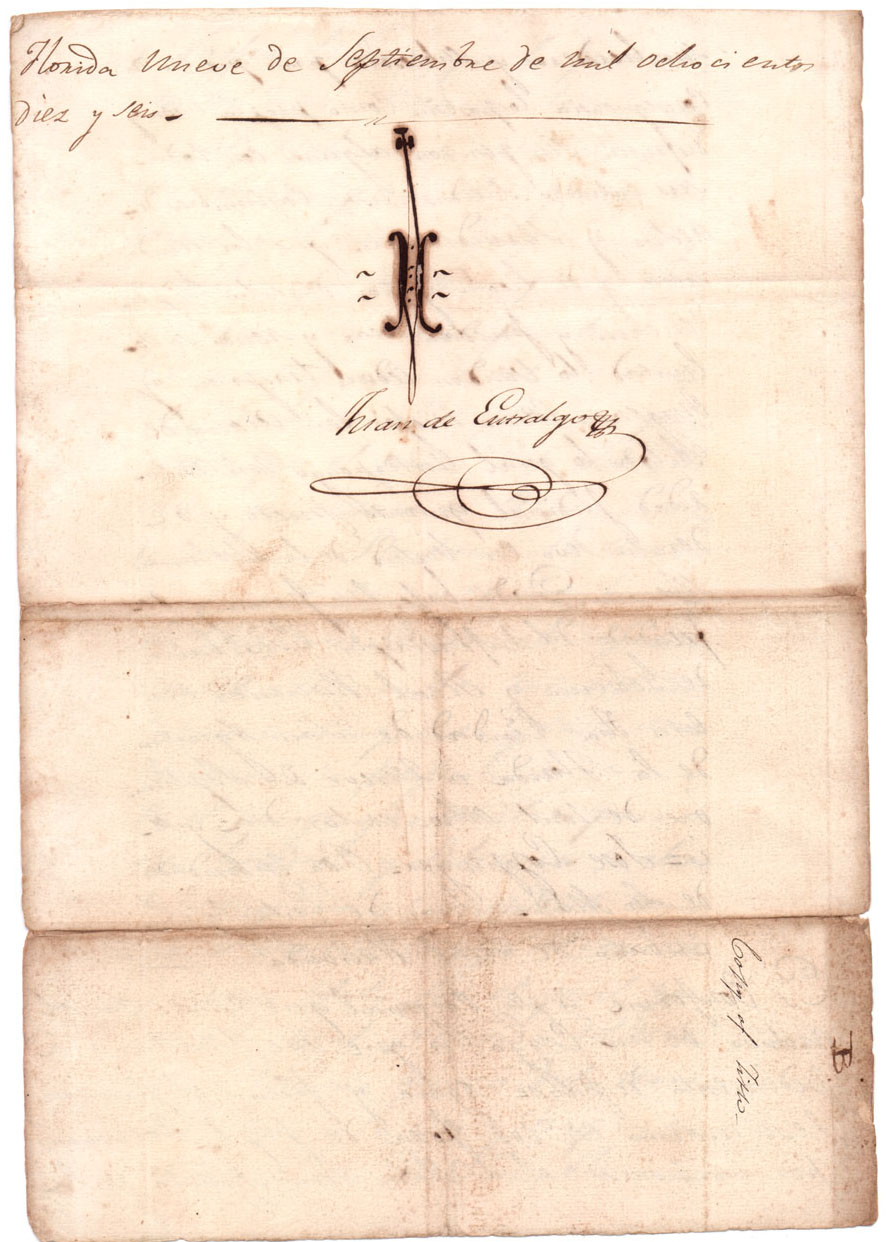 Florida nueve de Septiembre de mil ochocientos
diez y seis.
Juan de Entralgo
Copy of Title
B